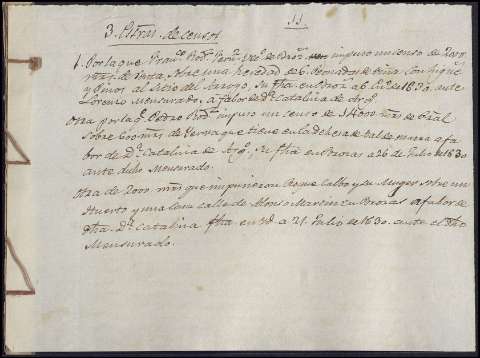 11.
3. escras. de censos
1. Por la que Franco. Rodz. vo. de impuso un censo de
mrs. de renta, sobre una heredad de 6. de viña con higueras
y olivos al sitio del su fha en a 6 de 1630. ante
Lorenzo Mensurado, a fabor de Da. Catalina de
Otra por la qe. Pedro Rodz. impuso un censo de 14000 mrs. de pral.
sobre de Yerva que tiene en la dehesa de Val de a fa-
bor de Da. Catalina de Su fha en Brozas a 26 de Julio de 1630
ante dicho Mensurado.
Otra de 2000 mrs que impusieron Calbo y su Muger sobre un
Huerto y una calle de Alonso Martin en Brozas a fabor de
dha. Da. Catalina fha en a 21. Julio de 1630. ante el dho
Mensurado.